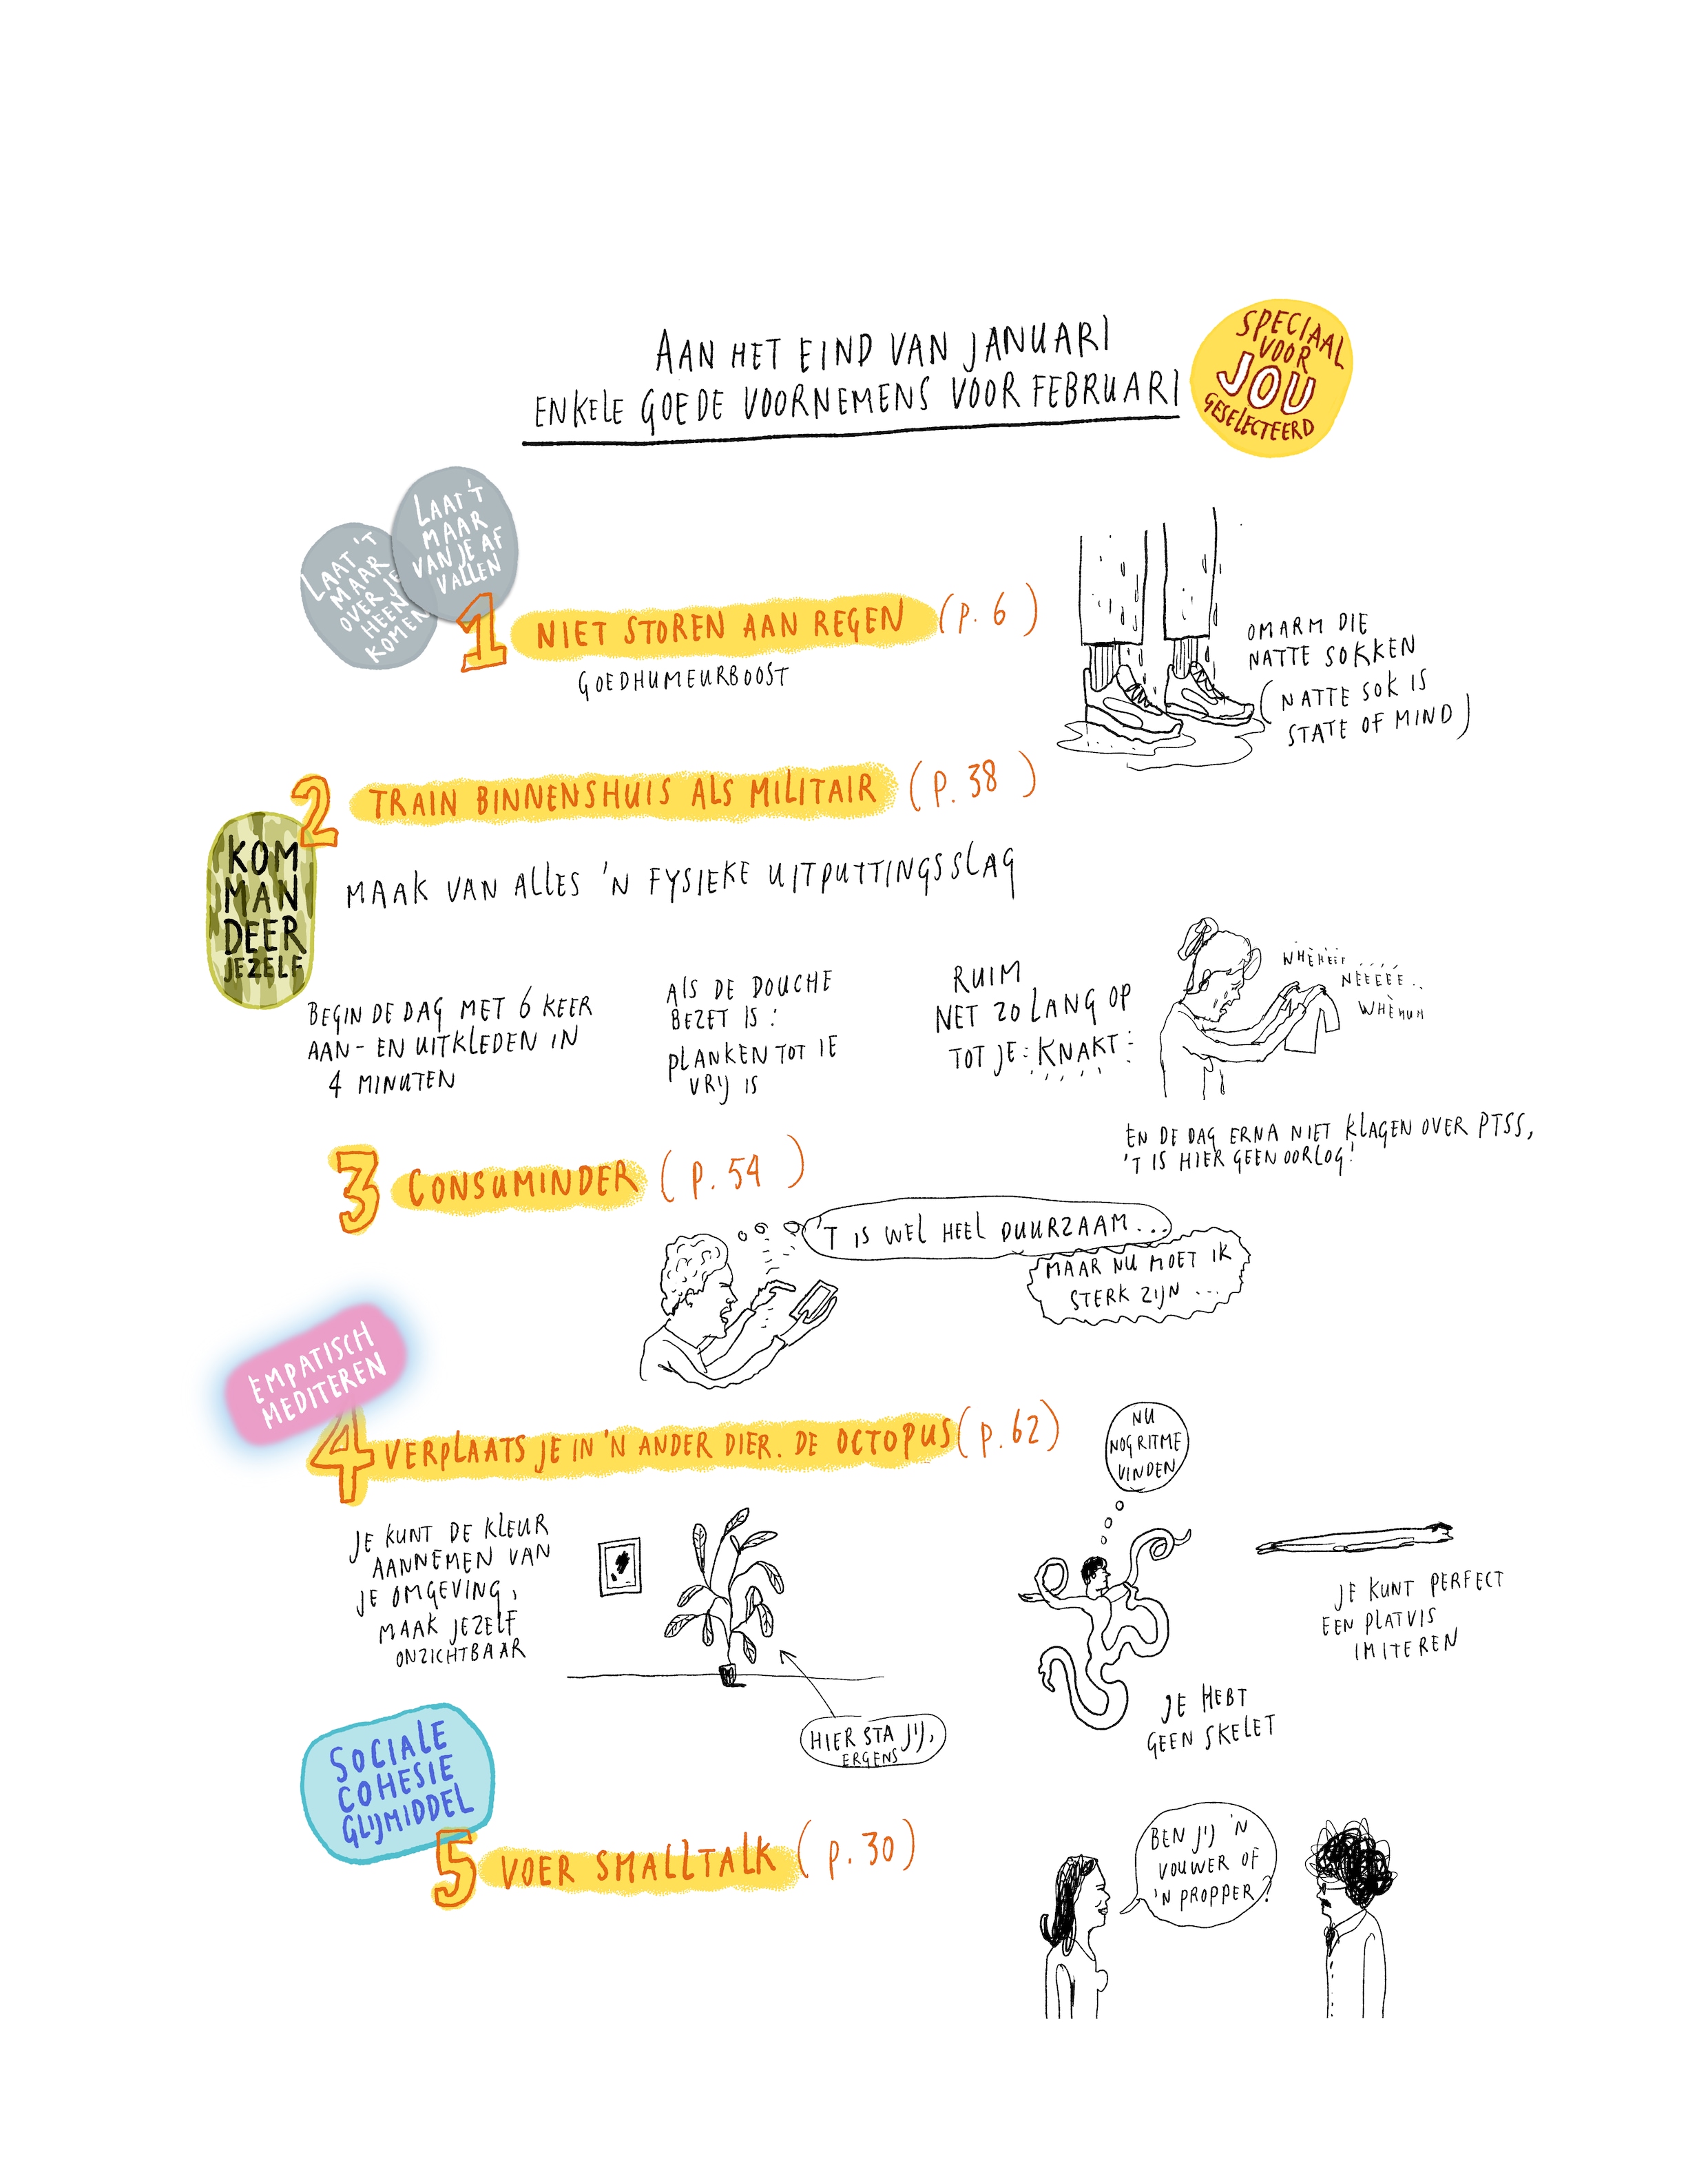 AAN HET EIND VAN JANUARI
ENKELE GOEDE VOORNEMENS VOOR FEBRUARI
SPECIAAL
VOOR
JOU
GESELECTEERD
LAAT 'T
MAAR
OVER JE
HEEN
KOMEN
LAAT 'T
MAAR
VAN JE AF
VALLEN
1 NIET STOREN AAN REGEN (P. 6)
GOEDHUMEURBOOST
OMARM DIE
NATTE SOKKEN
(NATTE SOK IS
STATE OF MIND)
2 TRAIN BINNENSHUIS ALS MILITAIR (P. 38)
KOM
MAN
DEER
JEZELF
MAAK VAN ALLES 'N FYSIEKE UITPUTTINGSSLAG
BEGIN DE DAG MET 6 KEER
AAN- EN UITKLEDEN IN
4 MINUTEN
ALS DE DOUCHE
BEZET IS:
PLANKEN TOT IE
VRIJ IS
RUIM
NET ZO LANG OP
TOT JE: KNAKT:
WHÈHEEF....
NEEEEE..
WHÈHUH
EN DE DAG ERNA NIET KLAGEN OVER PTSS,
'T IS HIER GEEN OORLOG!
3 CONSUMINDER (P. 54)
'T IS WEL HEEL DUURZAAM...
MAAR NU MOET IK
STERK ZIJN ...
EMPATISCH
MEDITEREN
4 VERPLAATS JE IN 'N ANDER DIER. DE OCTOPUS (P. 62)
JE KUNT DE KLEUR
AANNEMEN VAN
JE OMGEVING,
MAAK JEZELF
ONZICHTBAAR
HIER STA JIJ,
ERGENS
NU
NOG RITME
VINDEN
JE HEBT
GEEN SKELET
JE KUNT PERFECT
EEN PLATVIS
IMITEREN
SOCIALE
COHESIE
GLIJMIDDEL
5 VOER SMALLTALK (P. 30)
BEN JIJ 'N
VOUWER OF
'N PROPPER?